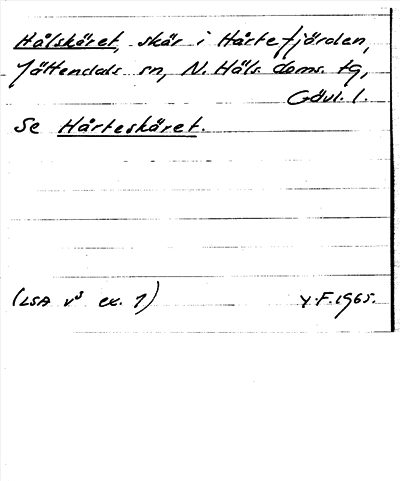 Hålskäret, skär i Hårtefjärden,
Jättendals sn, N. Häls. doms. tg,
Gävl. l.
Se Hårteskäret.
(LSA v³ ex. 1) Y.F. 1965.